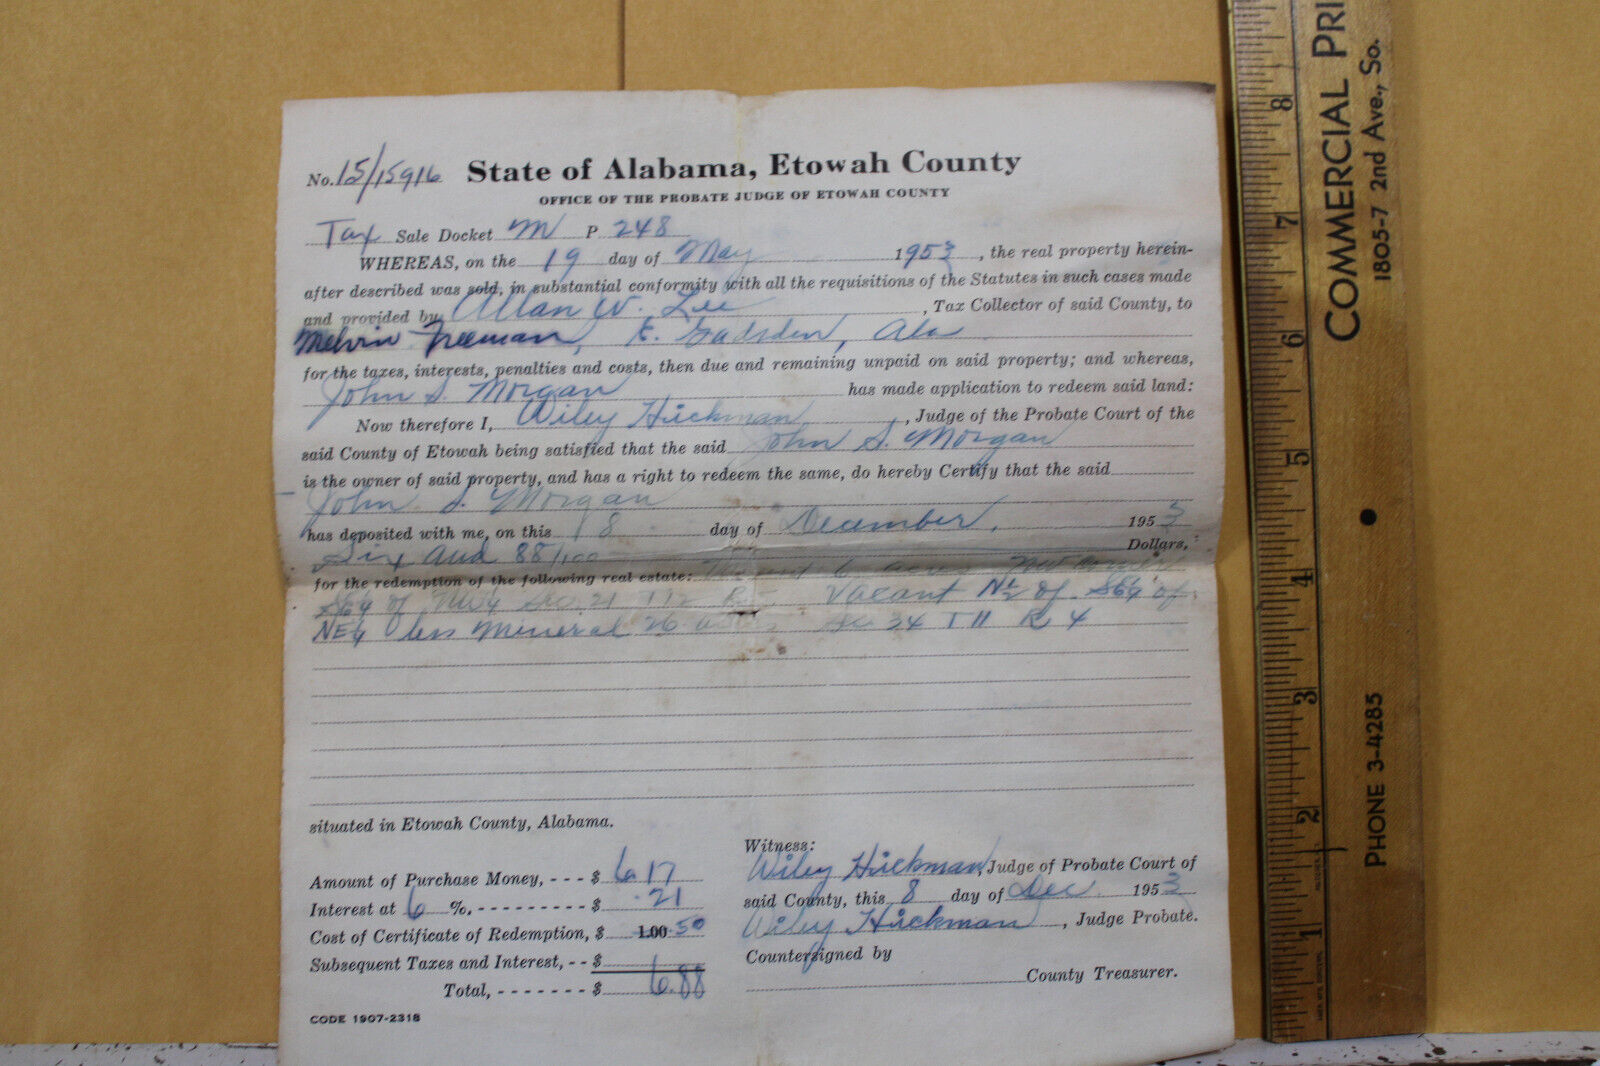 No. 15/15916 State of Alabama, Etowah County
OFFICE OF THE PROBATE JUDGE OF ETOWAH COUNTY
Tax Sale Docket M P 248
WHEREAS, on the 19 day of May 1953, the real property herein-
after described was sold, in substantial conformity with all the requisitions of the Statutes in such cases made
and provided by Allan W. Lee, Tax Collector of said County, to
Melvin Freeman, E. Gadsden, Ala
for the taxes, interests, penalties and costs, then due and remaining unpaid on said property; and whereas,
John S. Morgan has made application to redeem said land:
Now therefore I, Wiley Hickman, Judge of the Probate Court of the
said County of Etowah being satisfied that the said John S. Morgan
is the owner of said property, and has a right to redeem the same, do hereby Certify that the said
John S. Morgan
has deposited with me, on this 8 day of December, 1953
Six and 88/100 Dollars,
for the redemption of the following real estate: 6 acres
of NW4 Sec. 21 T12 Vacant N½ of SE4 of
NE4 less Mineral 26 34 T 11 R 4
situated in Etowah County, Alabama.
Amount of Purchase Money, - - - $ 6 17
Interest at 6 %, - - - - - - - - - $ .21
Cost of Certificate of Redemption, $ 1.00 .50
Subsequent Taxes and Interest, - - $
Total, - - - - - - - $ 6.88
CODE 1907-2318
Witness:
Wiley Hickman, Judge of Probate Court of
said County, this 8 day of Dec. 1953
Wiley Hickman, Judge Probate.
Countersigned by
County Treasurer.
COMMERCIAL PRI
1805-7 2nd Ave., So.
PHONE 3-4285
8
7
6
5
4
3
2
1